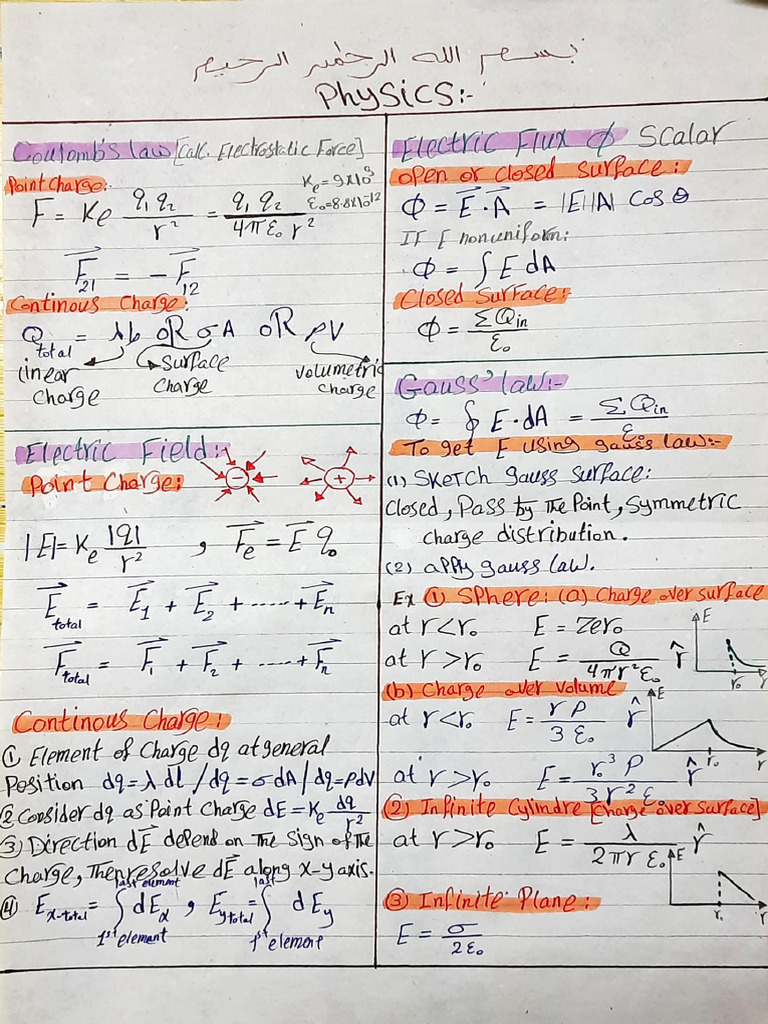 بسم الله الرحمن الرحيم
Physics:-
Coulomb's law [Calc. Electrostatic Force]
Point Charge:
Ke = 9x10⁹
F = Ke q₁ q₂ / r² = q₁ q₂ / 4πε₀ r²
ε₀ = 8.8x10⁻¹²
F⃗₂₁ = − F⃗₁₂
Continous Charge:
Q total = λL OR σA OR ρV
linear charge
Surface charge
volumetric charge
Electric Field:-
Point Charge:
− +
|E| = Ke |q| / r² , F⃗e = E⃗ q₀
E⃗ total = E⃗₁ + E⃗₂ + ----- + E⃗n
F⃗ total = F⃗₁ + F⃗₂ + ---- + F⃗n
Continous Charge:
① Element of Charge dq at general
Position dq = λ dl / dq = σ dA / dq = ρdV
② Consider dq as Point Charge dE = Ke dq / r²
③ Direction dE⃗ depend on The Sign of The
Charge, Then resolve dE⃗ along x-y axis.
④ E x-total = ∫ (1st element → last element) dEx , E y total = ∫ (1st element → last) dEy
Electric Flux ϕ Scalar
open or closed surface:
Φ = E⃗ . A⃗ = |E||A| Cos θ
If E nonuniform:
Φ = ∫ E dA
Closed Surface:-
Φ = ΣQin / ε₀
Gauss' law:-
Φ = ∮ E . dA = ΣQin / ε₀
To get E using gauss law:-
(1) Sketch gauss surface:
closed, Pass by The Point, Symmetric
charge distribution.
(2) apply gauss law.
Ex ① Sphere: (a) Charge over surface
at r<r₀ E = zero
at r>r₀ E = Q / 4πr²ε₀ r̂
E r₀ r
(b) Charge over volume
at r<r₀ E = rρ / 3ε₀ r̂
E r₀
at r>r₀ E = r₀³ρ / 3r²ε₀ r̂
(2) Infinite Cylindre [Charge over surface]
at r>r₀ E = λ / 2πr ε₀ r̂
E r₀ r
③ Infinite Plane:
E = σ / 2ε₀